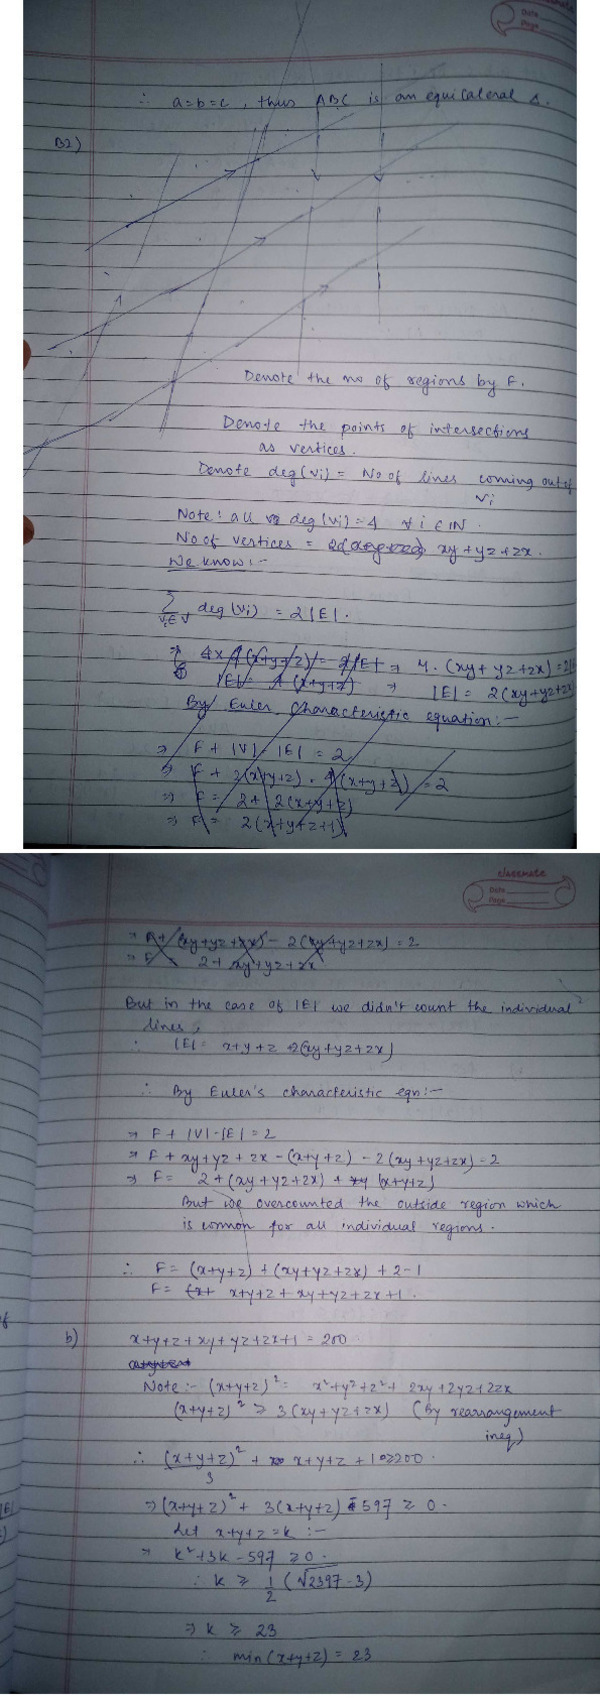 Date
Page
∴ a=b=c, thus ABC is an equilateral Δ.
B2)
Denote the no of regions by F.
Denote the points of intersections
as vertices.
Denote deg(vi) = No of lines coming out of
vi
Note: all deg(vi)=4 ∀ i ∈ IN.
No of vertices = xy+yz+zx.
We know:-
Σ deg(vi) = 2|E|.
vi∈V
⇒ 4x (x+y+z) = 2|E| ⇒ 4·(xy+yz+zx)=2|E
|E| = (x+y+z) ⇒ |E| = 2(xy+yz+zx
By Euler characteristic equation:-
⇒ F + |V| - |E| = 2
⇒ F + 2(x+y+z) - 4(x+y+z) = 2
⇒ F = 2+ 2(x+y+z)
⇒ F = 2(x+y+z+1)
classmate
Date
Page
⇒ F+ (xy+yz+zx) - 2(xy+yz+zx) = 2
⇒ F = 2+ xy+yz+zx
But in the case of |E| we didn't count the individual
lines,
∴ |E| = x+y+z +2(xy+yz+zx)
∴ By Euler's characteristic eqn:-
⇒ F + |V| - |E| = 2
⇒ F + xy+yz+zx - (x+y+z) - 2(xy+yz+zx) = 2
⇒ F = 2+(xy+yz+zx) + (x+y+z)
But we overcounted the outside region which
is common for all individual regions.
∴ F = (x+y+z) + (xy+yz+zx) + 2-1
F = x+y+z + xy+yz+zx+1.
b) x+y+z+xy+yz+zx+1 = 200.
Note:- (x+y+z)² = x²+y²+z²+ 2xy+2yz+2zx
(x+y+z)² ≥ 3(xy+yz+zx) (By rearrangement
ineq)
∴ (x+y+z)²/3 + x+y+z +1 ≥ 200.
⇒ (x+y+z)² + 3(x+y+z) - 597 ≥ 0.
Let x+y+z=k :-
⇒ k²+3k-597 ≥ 0.
∴ k ≥ 1/2 (√2397-3)
⇒ k ≥ 23
∴ min(x+y+z) = 23